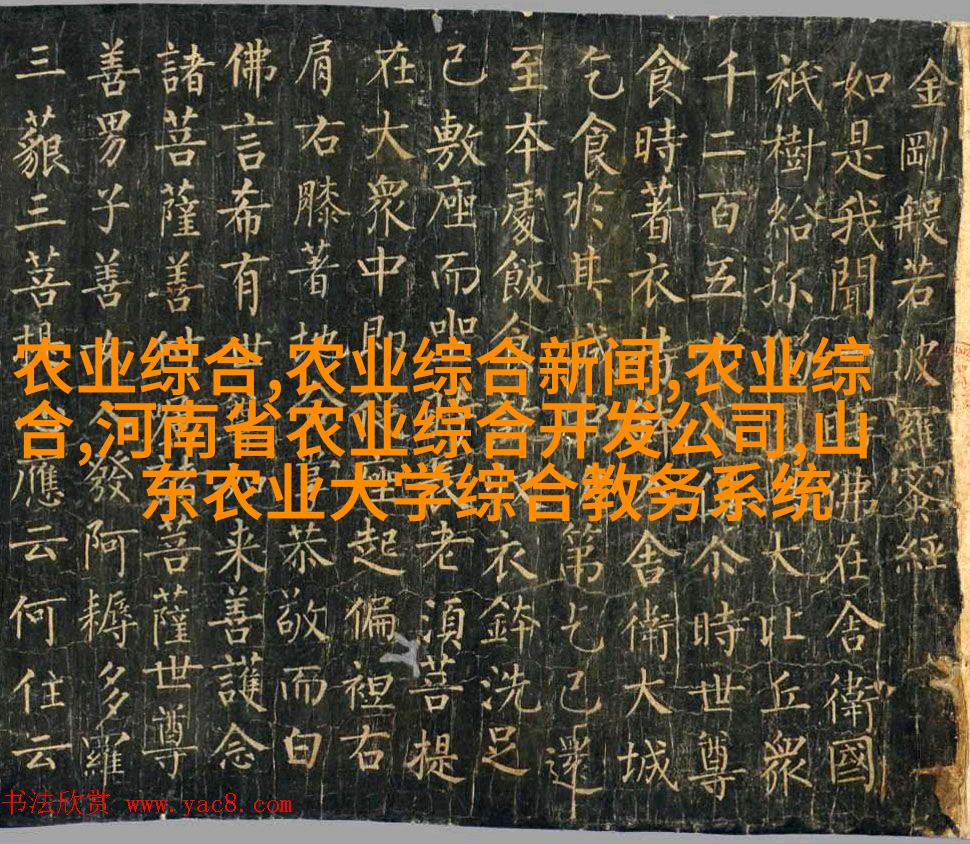 金剛般若波羅蜜經
如是我聞佛在舍衛國
祇樹給孤大比丘衆
千二百五尒時世尊
食時著衣舍衛大城
乞食於其城第乞已還
至本處飯食衣鉢洗足
已敷座而坐老須菩提
在大衆中即座起偏袒右
肩右膝著地恭敬而白
佛言希有世如来善護念
諸菩薩善付菩薩世尊
善男子善女人發阿耨多羅
三藐三菩提應云何住云
农业综合,农业综合新闻,农业综
合,河南省农业综合开发公司,山
东农业大学综合教务系统
书法欣赏 www.yac8.com